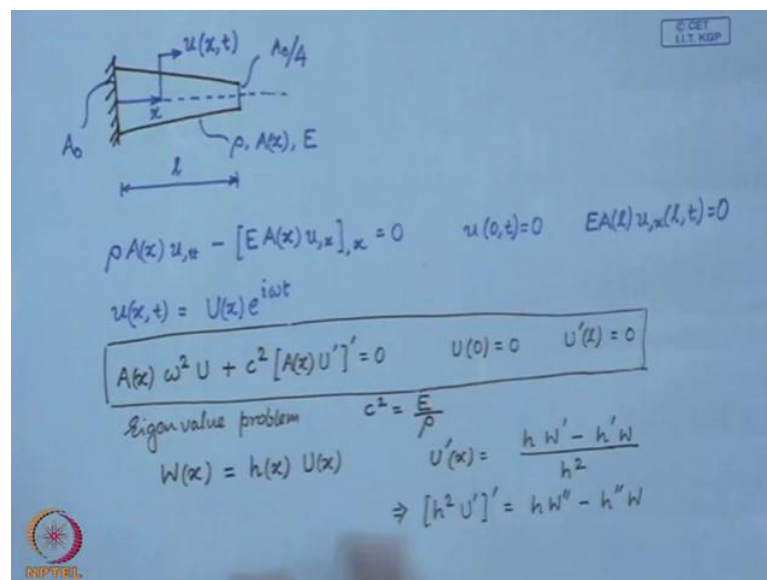 © CET
I.I.T. KGP
u(x,t)
A₀/4
x
A₀
ρ, A(x), E
l
ρA(x) u,tt − [EA(x) u,x],x = 0 u(0,t)=0 EA(l) u,x(l,t)=0
u(x,t) = U(x) e^{iωt}
A(x) ω² U + c² [A(x) U']' = 0 U(0) = 0 U'(l) = 0
Eigenvalue problem c² = E/ρ
W(x) = h(x) U(x) U'(x) = (h W' − h' W)/h²
⇒ [h² U']' = h W'' − h'' W
NPTEL